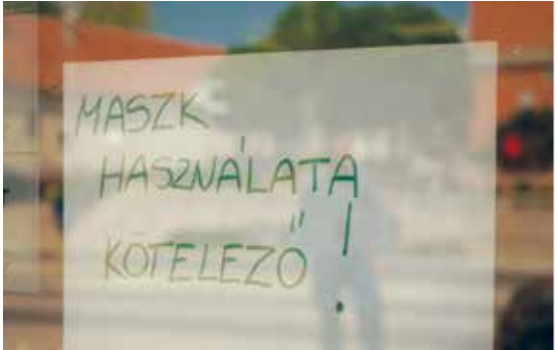 MASZK
HASZNÁLATA
KÖTELEZŐ!